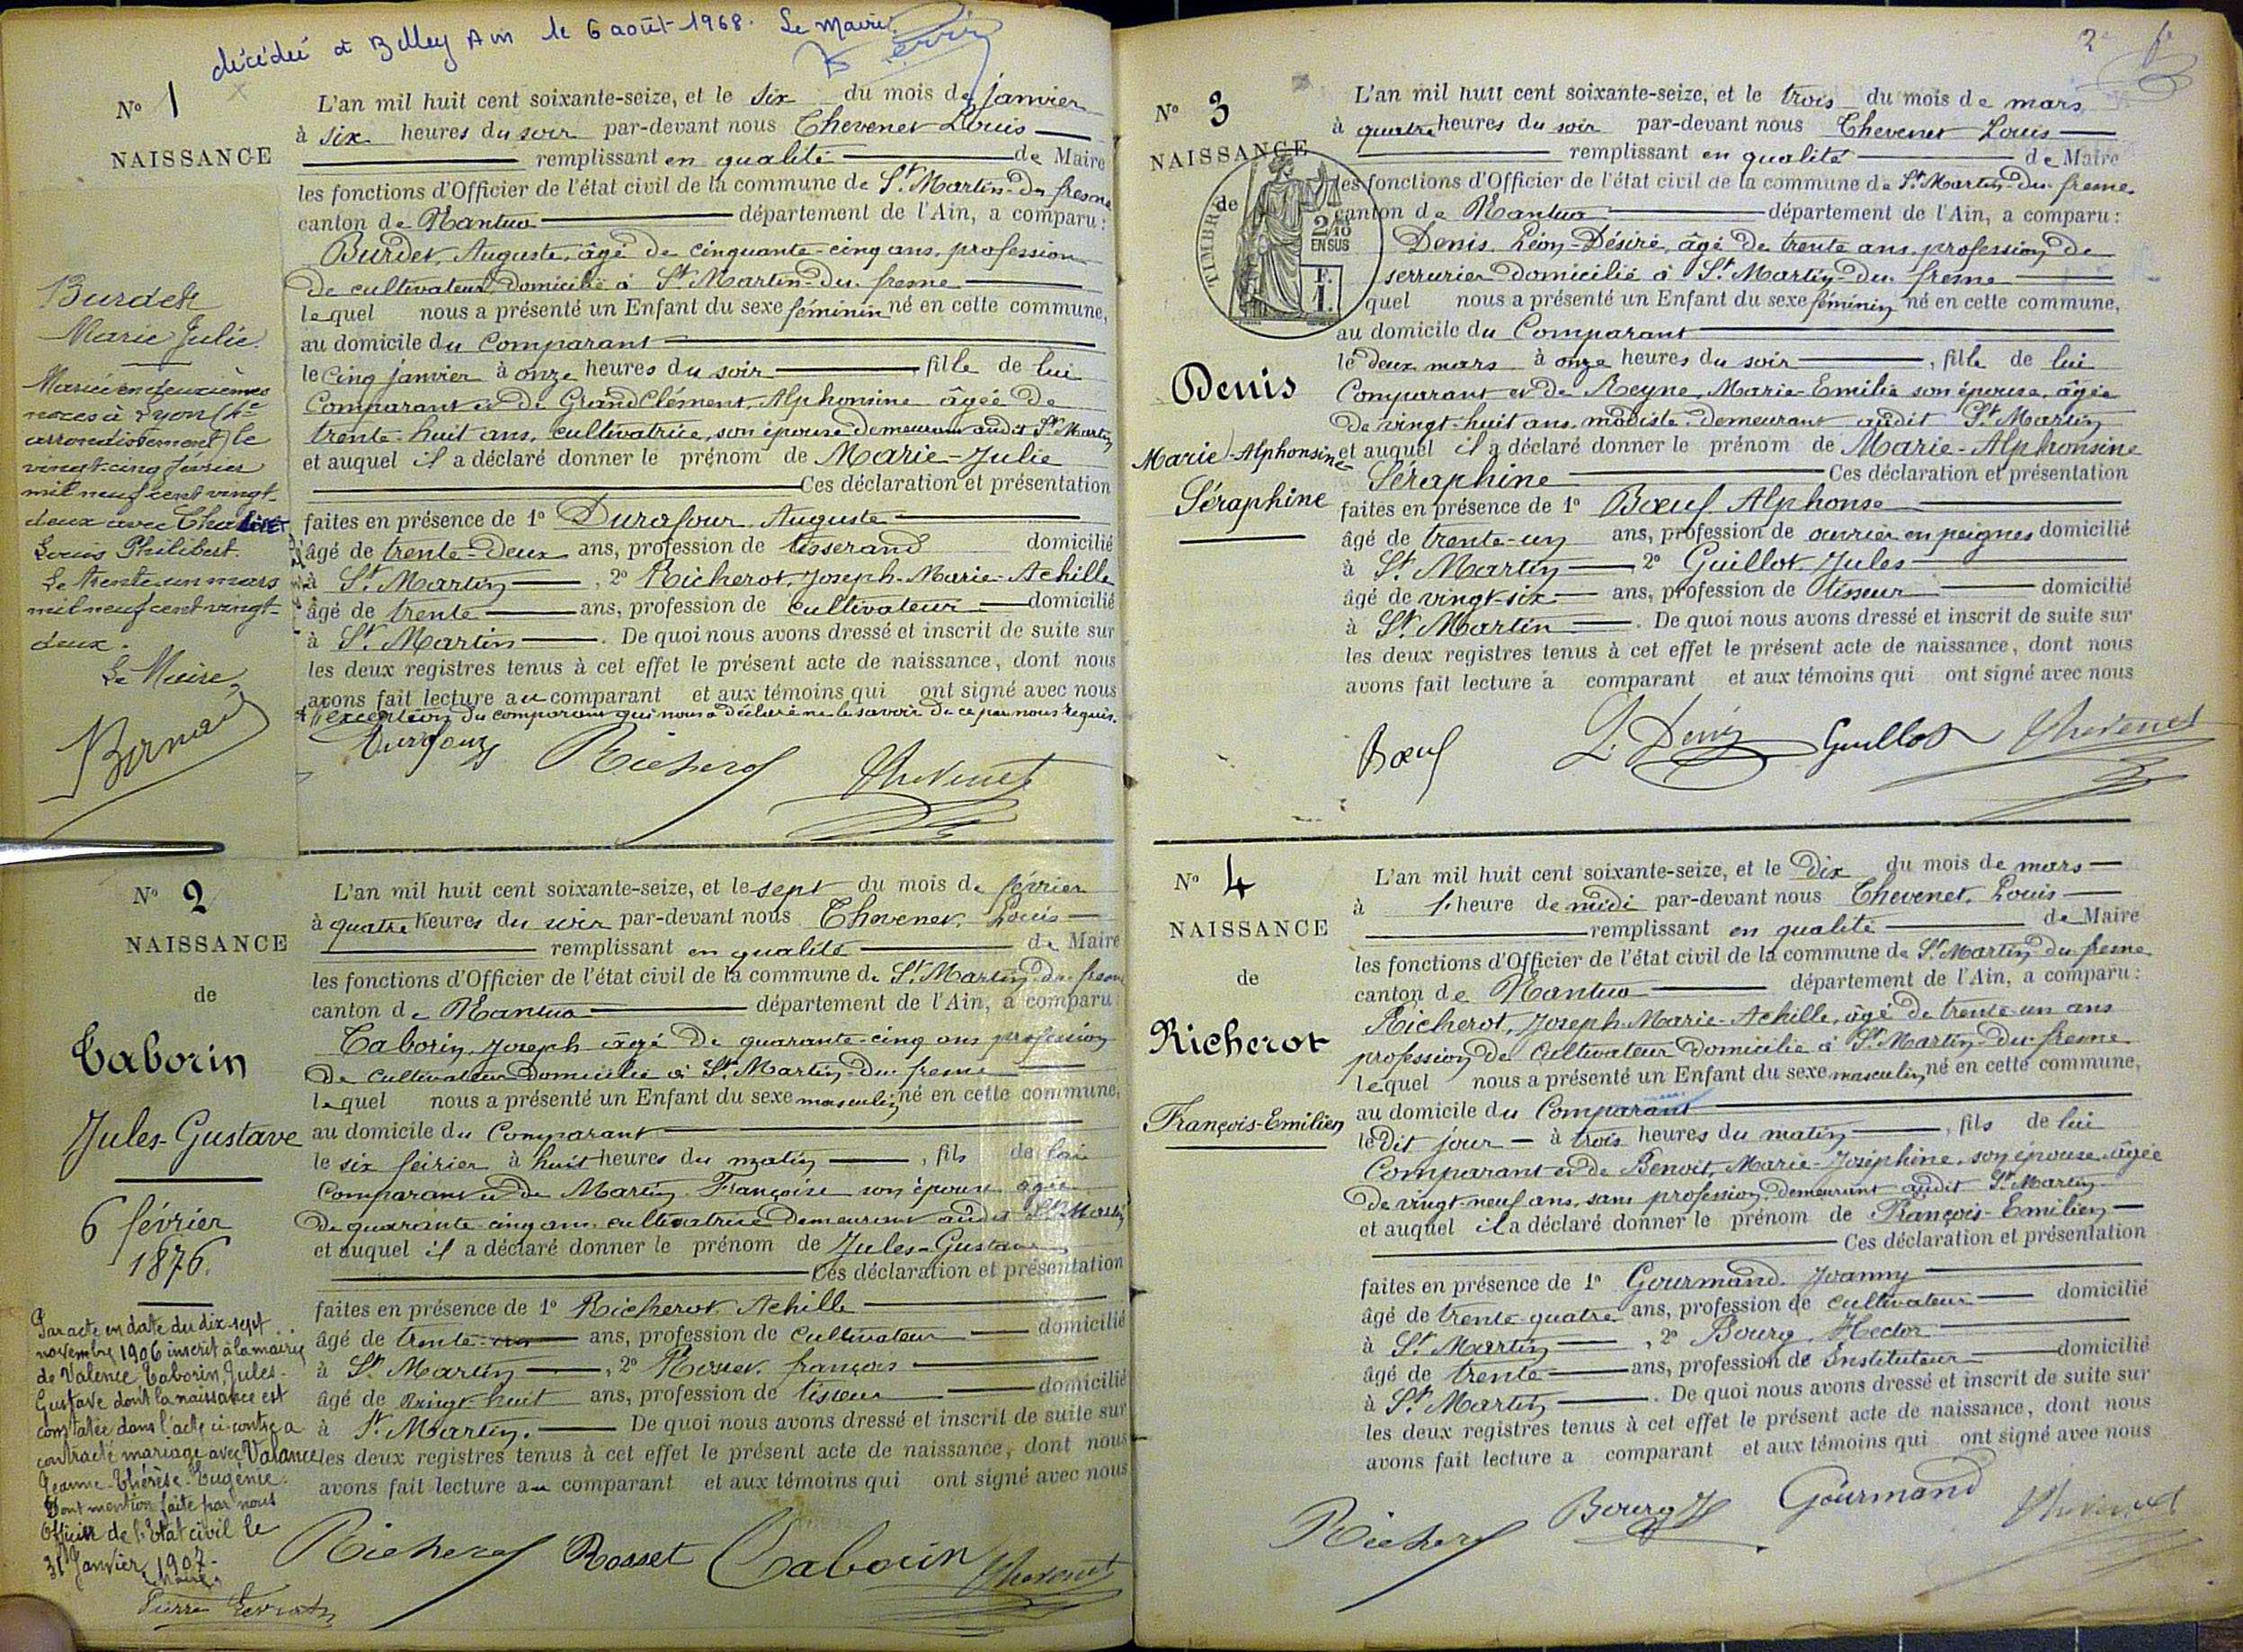 décédée à Belley Ain le 6 août 1968. Le Maire
N° 1
NAISSANCE
Burdet
Marie Julie.
Mariée en deuxièmes
noces à Lyon (
arrondissement) le
vingt-cinq février
mil neuf cent vingt-
deux avec
Louis Philibert.
Le trente un mars
mil neuf cent vingt-
deux.
Le Maire
L'an mil huit cent soixante-seize, et le six du mois de janvier
à six heures du soir par-devant nous Chevenet Louis
remplissant en qualité de Maire
les fonctions d'Officier de l'état civil de la commune de St. Martin-du fresne
canton de Nantua département de l'Ain, a comparu:
Burdet, Auguste, âgé de cinquante-cinq ans, profession
de cultivateur domicilié à St Martin-du fresne
lequel nous a présenté un Enfant du sexe féminin né en cette commune,
au domicile du Comparant
le cinq janvier à onze heures du soir fille de lui
Comparant et de Grand Clément, Alphonsine âgée de
trente-huit ans, cultivatrice, son épouse demeurant audit St Martin
et auquel il a déclaré donner le prénom de Marie-Julie
Ces déclaration et présentation
faites en présence de 1° Durafour Auguste
âgé de trente-deux ans, profession de tisserand domicilié
à St. Martin, 2° Richerot, Joseph-Marie-Achille
âgé de trente ans, profession de cultivateur domicilié
à St. Martin. De quoi nous avons dressé et inscrit de suite sur
les deux registres tenus à cet effet le présent acte de naissance, dont nous
avons fait lecture au comparant et aux témoins qui ont signé avec nous
à l'exception du comparant qui nous a déclaré ne le savoir de ce par nous requis.
Durafour Richerot Chevenet
N° 2
NAISSANCE
de
Taborin
Jules-Gustave
6 février
1876.
Par acte en date du dix-sept
novembre 1906 inscrit à la mairie
de Valence Taborin, Jules-
Gustave dont la naissance est
constatée dans l'acte ci-contre a
contracté mariage avec Varance
Jeanne-Thérèse-Eugénie.
Dont mention faite par nous
Officier de l'Etat civil le
31 Janvier 1907.
Maire
Pierre
L'an mil huit cent soixante-seize, et le sept du mois de février
à quatre heures du soir par-devant nous Chevenet, Louis
remplissant en qualité de Maire
les fonctions d'Officier de l'état civil de la commune de St. Martin-du fresne
canton de Nantua département de l'Ain, a comparu:
Taborin, Joseph âgé de quarante-cinq ans profession
de cultivateur domicilié à St. Martin-du fresne
lequel nous a présenté un Enfant du sexe masculin né en cette commune,
au domicile du Comparant
le six février à huit heures du matin, fils de lui
Comparant et de Martin Françoise son épouse âgée
de quarante-cinq ans cultivatrice demeurant audit St Martin
et auquel il a déclaré donner le prénom de Jules-Gustave
Ces déclaration et présentation
faites en présence de 1° Richerot Achille
âgé de trente ans, profession de cultivateur domicilié
à St. Martin, 2° Rosset, françois
âgé de vingt-huit ans, profession de tisseur domicilié
à St. Martin. De quoi nous avons dressé et inscrit de suite sur
les deux registres tenus à cet effet le présent acte de naissance, dont nous
avons fait lecture au comparant et aux témoins qui ont signé avec nous
Richerot Rosset Taborin Chevenet
2e
N° 3
NAISSANCE
de
TIMBRE
2/10
EN SUS
F.
1.
Denis
Marie-Alphonsine-
Séraphine
L'an mil huit cent soixante-seize, et le trois du mois de mars
à quatre heures du soir par-devant nous Chevenet Louis
remplissant en qualité de Maire
les fonctions d'Officier de l'état civil de la commune de St. Martin-du-fresne.
canton de Nantua département de l'Ain, a comparu:
Denis, Léon-Désiré, âgé de trente ans, profession de
serrurier domicilié à St. Martin-du-fresne
quel nous a présenté un Enfant du sexe féminin né en cette commune,
au domicile du Comparant
le deux mars à onze heures du soir, fille de lui
Comparant et de Reyne, Marie-Emilie son épouse, âgée
de vingt-huit ans, modiste demeurant audit St Martin
et auquel il a déclaré donner le prénom de Marie-Alphonsine
Séraphine Ces déclaration et présentation
faites en présence de 1° Bœuf Alphonse
âgé de trente-un ans, profession de ouvrier en peignes domicilié
à St. Martin 2° Guillot Jules
âgé de vingt-six ans, profession de tisseur domicilié
à St. Martin. De quoi nous avons dressé et inscrit de suite sur
les deux registres tenus à cet effet le présent acte de naissance, dont nous
avons fait lecture à comparant et aux témoins qui ont signé avec nous
Bœuf L. Denis Guillot Chevenet
N° 4
NAISSANCE
de
Richerot
François-Emilien
L'an mil huit cent soixante-seize, et le dix du mois de mars
à 1. heure de midi par-devant nous Chevenet, Louis
remplissant en qualité de Maire
les fonctions d'Officier de l'état civil de la commune de St. Martin-du fresne
canton de Nantua département de l'Ain, a comparu:
Richerot, Joseph-Marie-Achille, âgé de trente-un ans
profession de cultivateur domicilié à St. Martin-du fresne
lequel nous a présenté un Enfant du sexe masculin né en cette commune,
au domicile du Comparant
le dit jour à trois heures du matin, fils de lui
Comparant et de Benoit, Marie-Joséphine, son épouse âgée
de vingt-neuf ans, sans profession demeurant audit St. Martin
et auquel il a déclaré donner le prénom de François-Emilien
Ces déclaration et présentation
faites en présence de 1° Gourmand, Joanny
âgé de trente-quatre ans, profession de cultivateur domicilié
à St. Martin, 2° Bourg, Hector
âgé de trente ans, profession de Instituteur domicilié
à St. Martin. De quoi nous avons dressé et inscrit de suite sur
les deux registres tenus à cet effet le présent acte de naissance, dont nous
avons fait lecture a comparant et aux témoins qui ont signé avec nous
Richerot Bourg H Gourmand Chevenet